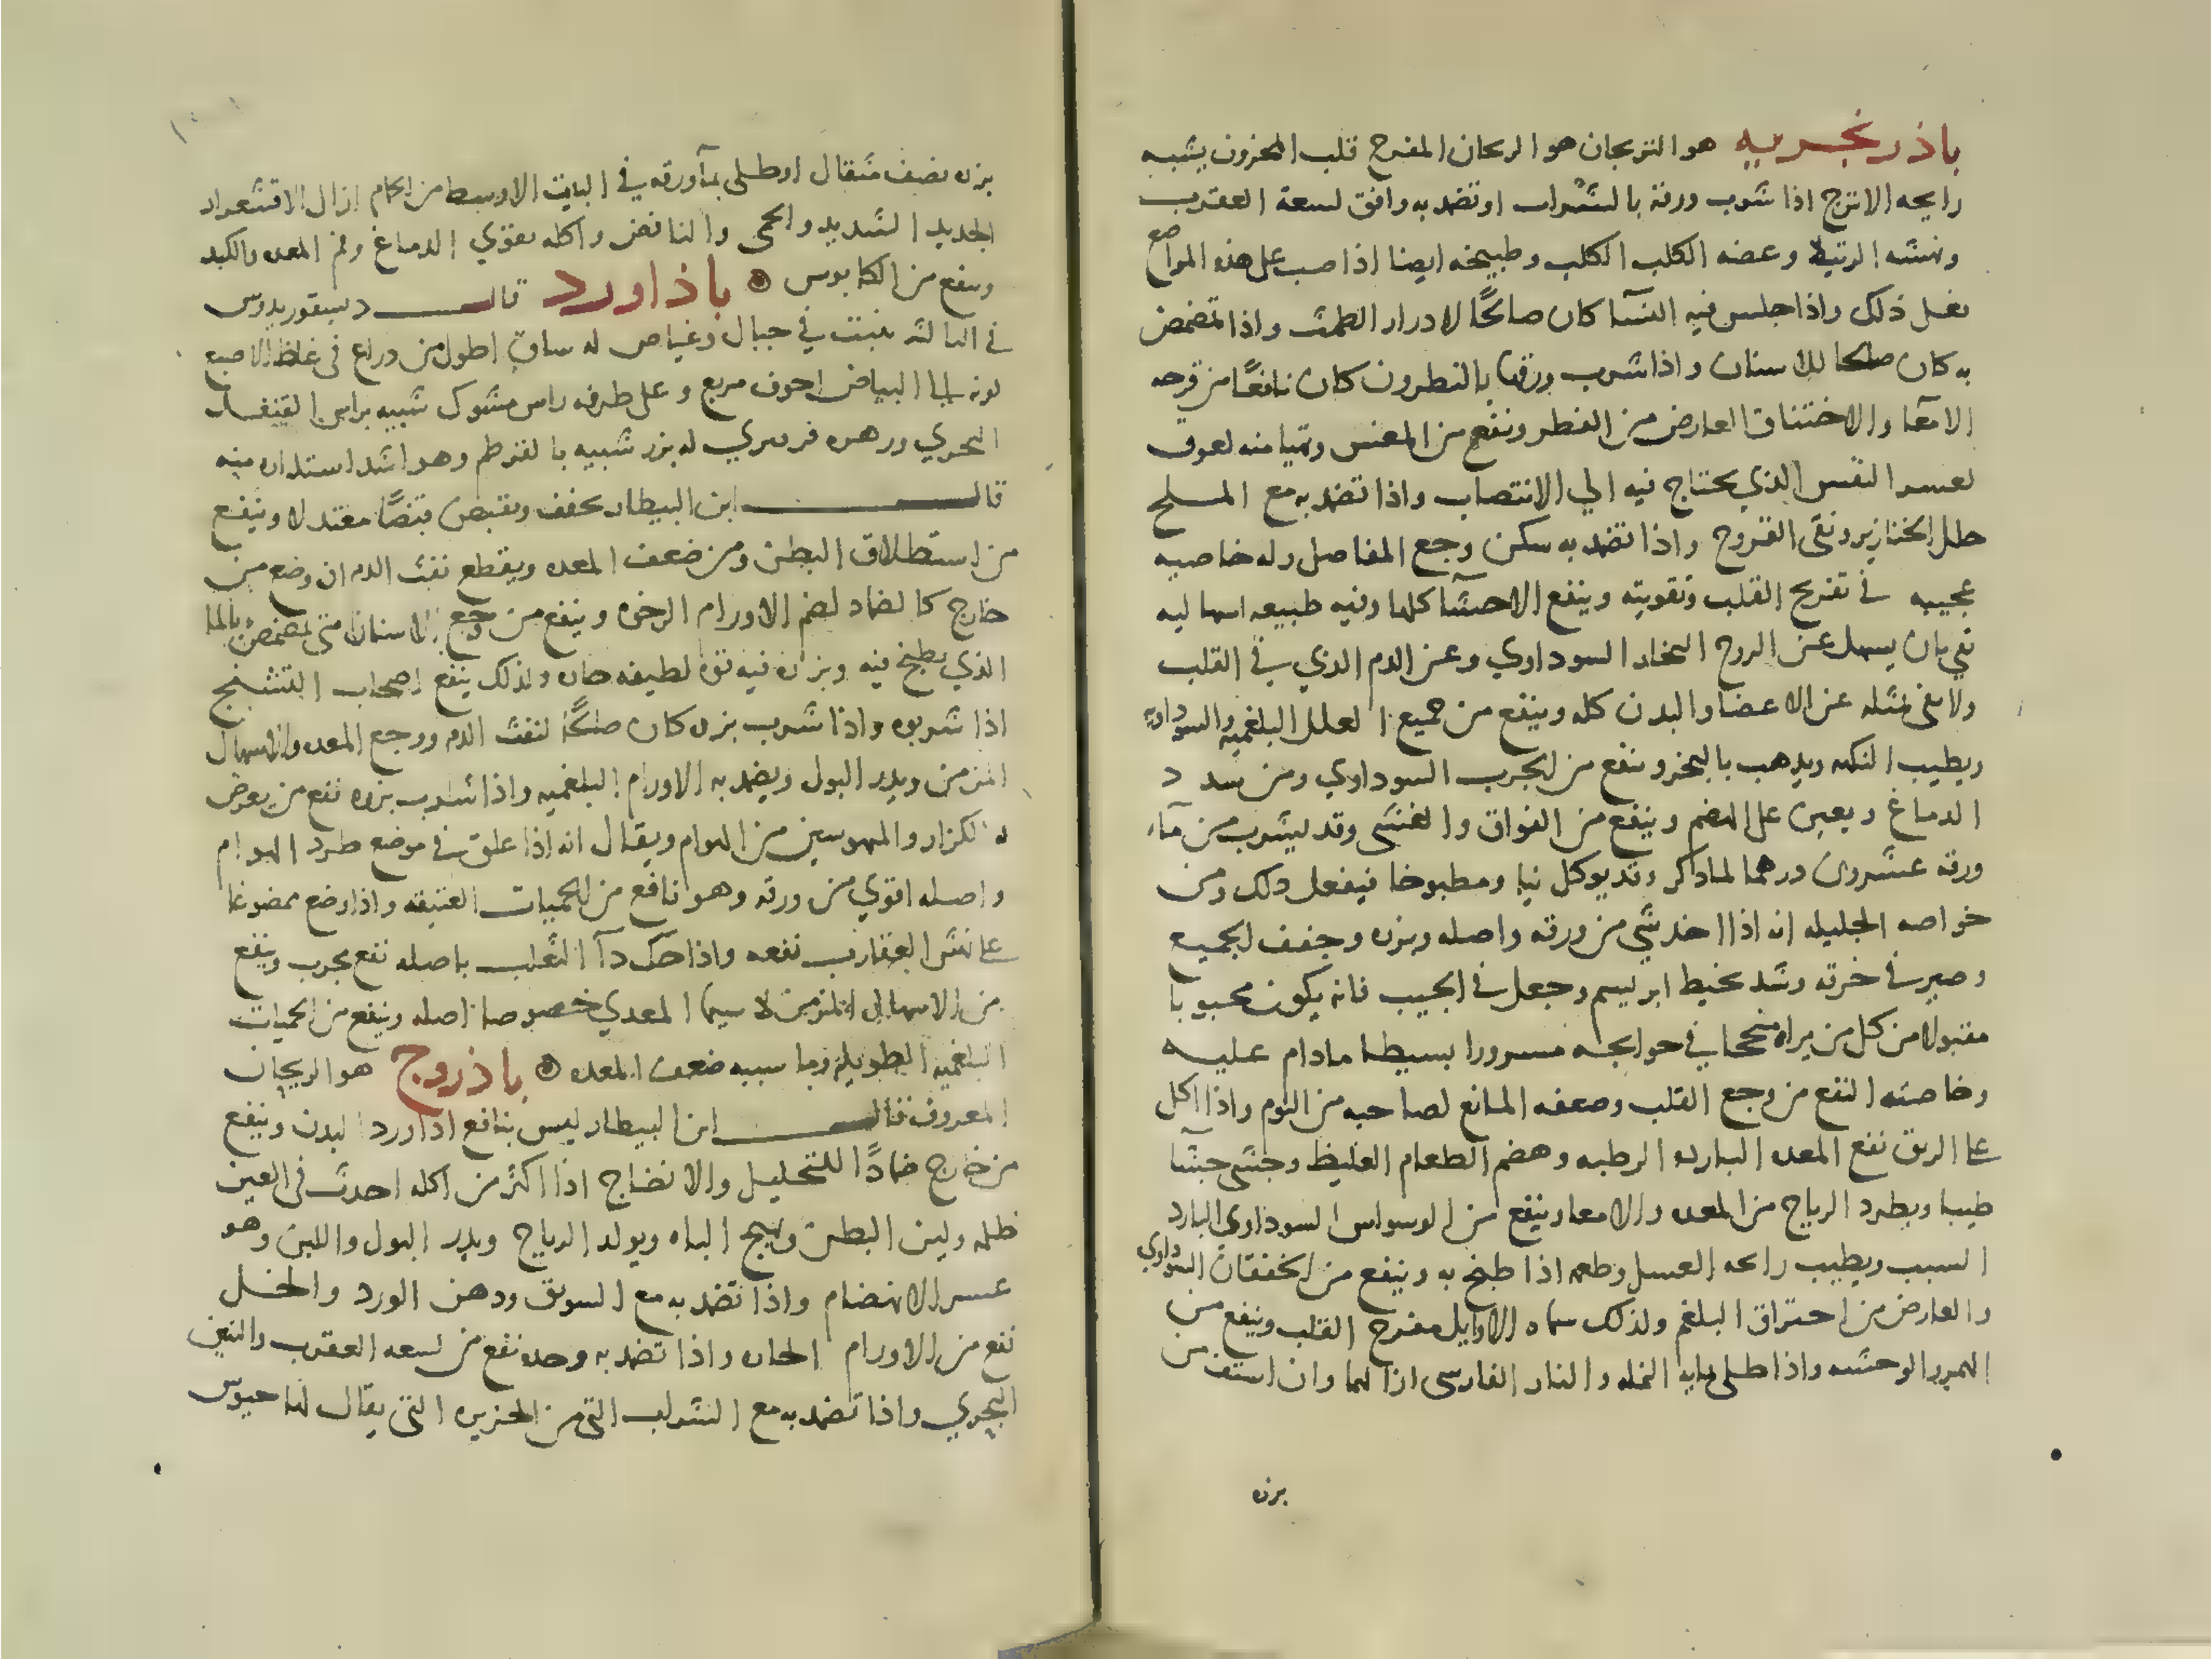 باذرنجبريه هو الترنجان هو الريحان المفرح قلب المحزون يشبه
رايحه الاترج اذا شرب ورقه بالشراب او تضمد به وافق لسعة العقرب
ونهشه الرتيلا وعضه الكلب الكلب وطبيخه ايضا اذا صب على هذه المواضع
فعل ذلك واذا جلس فيه النسآ كان صالحًا لادرار الطمث واذا تمضمض
به كان صلحا للاسنان واذا شرب ورقها بالنطرون كان نافعًا من قرحه
الامعآ والاختناق العارض من الفطر وينفع من المغس وتهيا منه لعوق
لعسر النفس الذي يحتاج فيه الي الانتصاب واذا تضمد به مع الملح
حلل الخنازير ونقى القروح واذا تضمد به سكن وجع المفاصل وله خاصيه
عجيبه في تفريح القلب وتقويته وينفع الاحشآ كلها وفيه طبيعه اسهاليه
تفي بان يسهل عن الروح البخار السوداوي وعن الدم الذي في القلب
ولا يفي بمثله عن الاعضا والبدن كله وينفع من جميع العلل البلغميه والسوداويه
ويطيب النكهه ويذهب بالبخر وينفع من الجرب السوداوي ومن سدد
الدماغ ويعين على الهضم وينفع من الفواق والغشى وقد يشرب من مآء
ورقه عشرون درهما لما ذكر وقد يوكل نيا ومطبوخا فيفعل ذلك ومن
خواصه الجليله انه اذا اخذ شي من ورقه واصله وبزره وجفف الجميع
وصير في خرقه وشد بخيط ابريسم وجعل في الجيب فانه يكون محبوبا
مقبولا من كل من يراه منجحا في حوايجه مسرورا بسيطا مادام عليه
وخاصته النفع من وجع القلب وضعفه المانع لصاحبه من النوم واذا اكل
على الريق نفع المعده البارده الرطبه وهضم الطعام الغليظ وجشى جشآ
طيبا وبطرد الرياح من المعده والامعا وينفع من الوسواس السوداوي البارد
السبب ويطيب رائحه العسل وطعمه اذا طبخ به وينفع من الخفقان السوداوي
والعارض من احتراق البلغم ولذلك سماه الاوايل مفرح القلب وينفع من
الهموم الوحشه واذا طلى بمايه النمله والنار الفارسى ازالهما وان استف من
بزره
بزره نصف مثقال او طلى بمآ ورقه في البيت الاوسط من الحمام ازال الاقشعرار
الجديد الشديد والحمى والنافض واكله يقوي الدماغ وفم المعده والكبد
وينفع من الكابوس باذاورد قال ديسقوريدوس
في الثالثه ينبت في جبال وغياض له ساق اطول من دراع في غلظ الاصبع
لونه الى البياض اجوف مربع وعلى طرفه راس مشوك شبيه براس القنفد
البحري وزهره فرفيري له بزر شبيه بالقرطم وهو اشد استداره منه
قال ابن البيطار يجفف ويقبض قبضًا معتدلا وينفع
من استطلاق البطن ومن ضعف المعده ويقطع نفث الدم ان وضع من
خارج كالضماد لضم الاورام الرخوه وينفع من وجع الاسنان متى تمضمض بالما
الذي يطبخ فيه وبزره فيه قوه لطيفه حاره ولذلك ينفع اصحاب التشنج
اذا شربوه واذا شرب بزره كان صلحًا لنفث الدم ووجع المعده والاسهال
المزمن ويدر البول ويضمد به الاورام البلغميه واذا شرب بزره نفع من يعرض
له الكزاز والمنهوسين من الهوام ويقال انه اذا علق في موضع طرد الهوام
واصله اقوي من ورقه وهو نافع من الحميات العتيقه واذا وضع ممضوغا
على نهش العقارب نفعه واذا حك دآ الثعلب باصله نفع مجرب وينفع
من الاسهال المزمن لا سيما المعدي خصوصا اصله وينفع من الحميات
البلغميه الطويله وما سببه ضعف المعده باذروج هو الريحان
المعروف قال ابن البيطار ليس بنافع اذا ورد البدن وينفع
من خارج ضمادًا للتحليل والانضاج اذا اكثر من اكله احدث في العين
ظلمه ولين البطن وهيج الباه ويولد الرياح ويدر البول واللبن وهو
عسر الانهضام واذا تضمد به مع السويق ودهن الورد والخل
نفع من الاورام الحاره واذا تضمد به وحده نفع من لسعه العقرب والتنين
البحري واذا تضمد به مع الشراب التي من الجزيره التي يقال لها حيوس